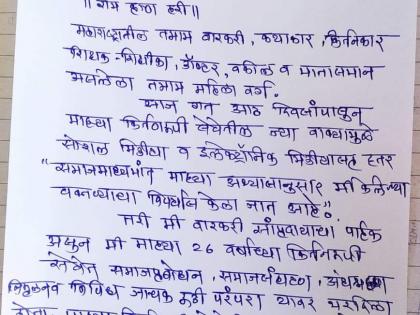 ॥ राम कृष्ण हरी ॥
महाराष्ट्रातील तमाम वारकरी, कथाकार, किर्तनकार
शिक्षक-शिक्षीका, डॉक्टर, वकील व मातासमान
असलेला तमाम महिला वर्ग.
आज गत आठ दिवसांपासून
माझ्या किर्तनरूपी सेवेतील ज्या वाक्यामुळे
सोशल मिडीया व इलेक्ट्रॉनिक मिडीयासह इतर
"समाजमाध्यमांत माझ्या अभ्यासानुसार मी केलेल्या
वक्तव्याचा विपर्यास केला जात आहे."
तरी मी वारकरी सांप्रदायाचा पाईक
असून मी माझ्या 26 वर्षाच्या किर्तनरूपी
सेवेत समाजप्रबोधन, समाजसंघटन, अंधश्रध्दा
निमुर्लनव विविध जाचक रूढी परंपरा यावर